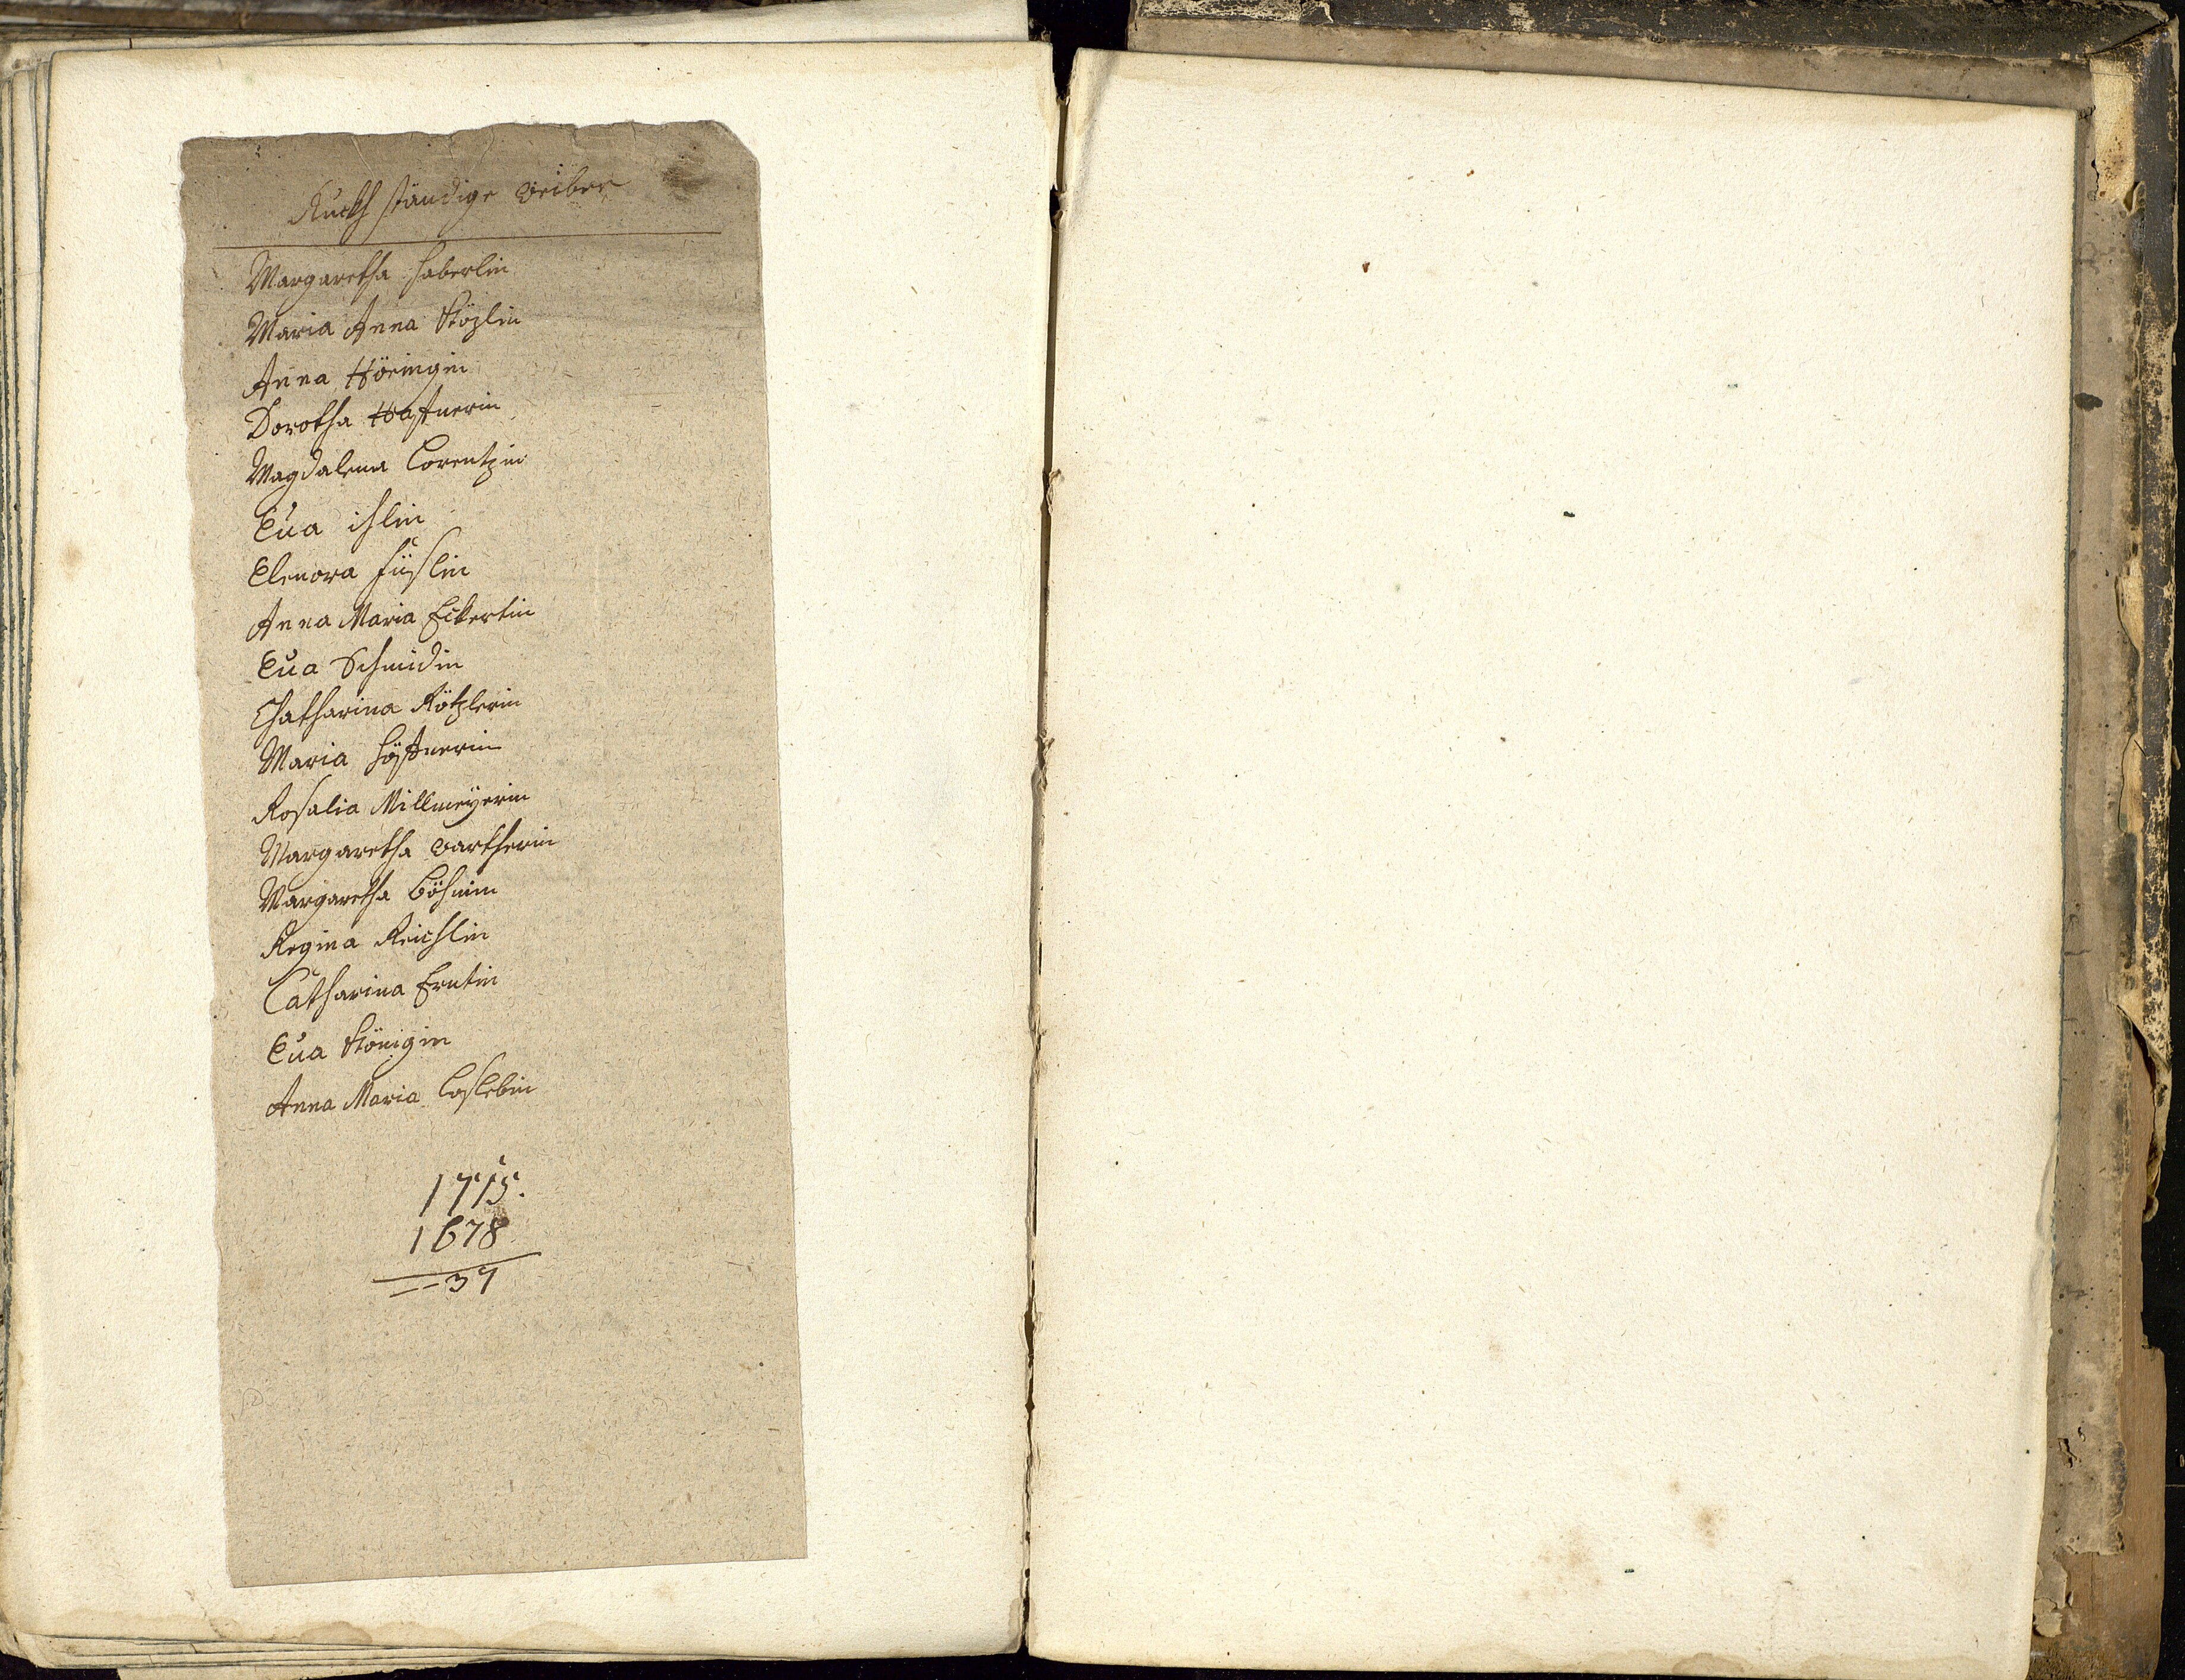 Ruckh ständige weiber
Margaretha Haberlin
Maria Anna Közlin
Anna Höringin
Dorotha
Magdalena Lorentzin
Eua ihlin
Elenora Füslin
Anna Maria Eckertin
Eua Schmidin
Chatharina Rötzlerin
Maria
Rosalia Millmeÿerin
Margaretha wartherin
Margaretha Böhmin
Regina Reichlin
Catharina Erntin
Eua Königin
Anna Maria
1715.
1678
37